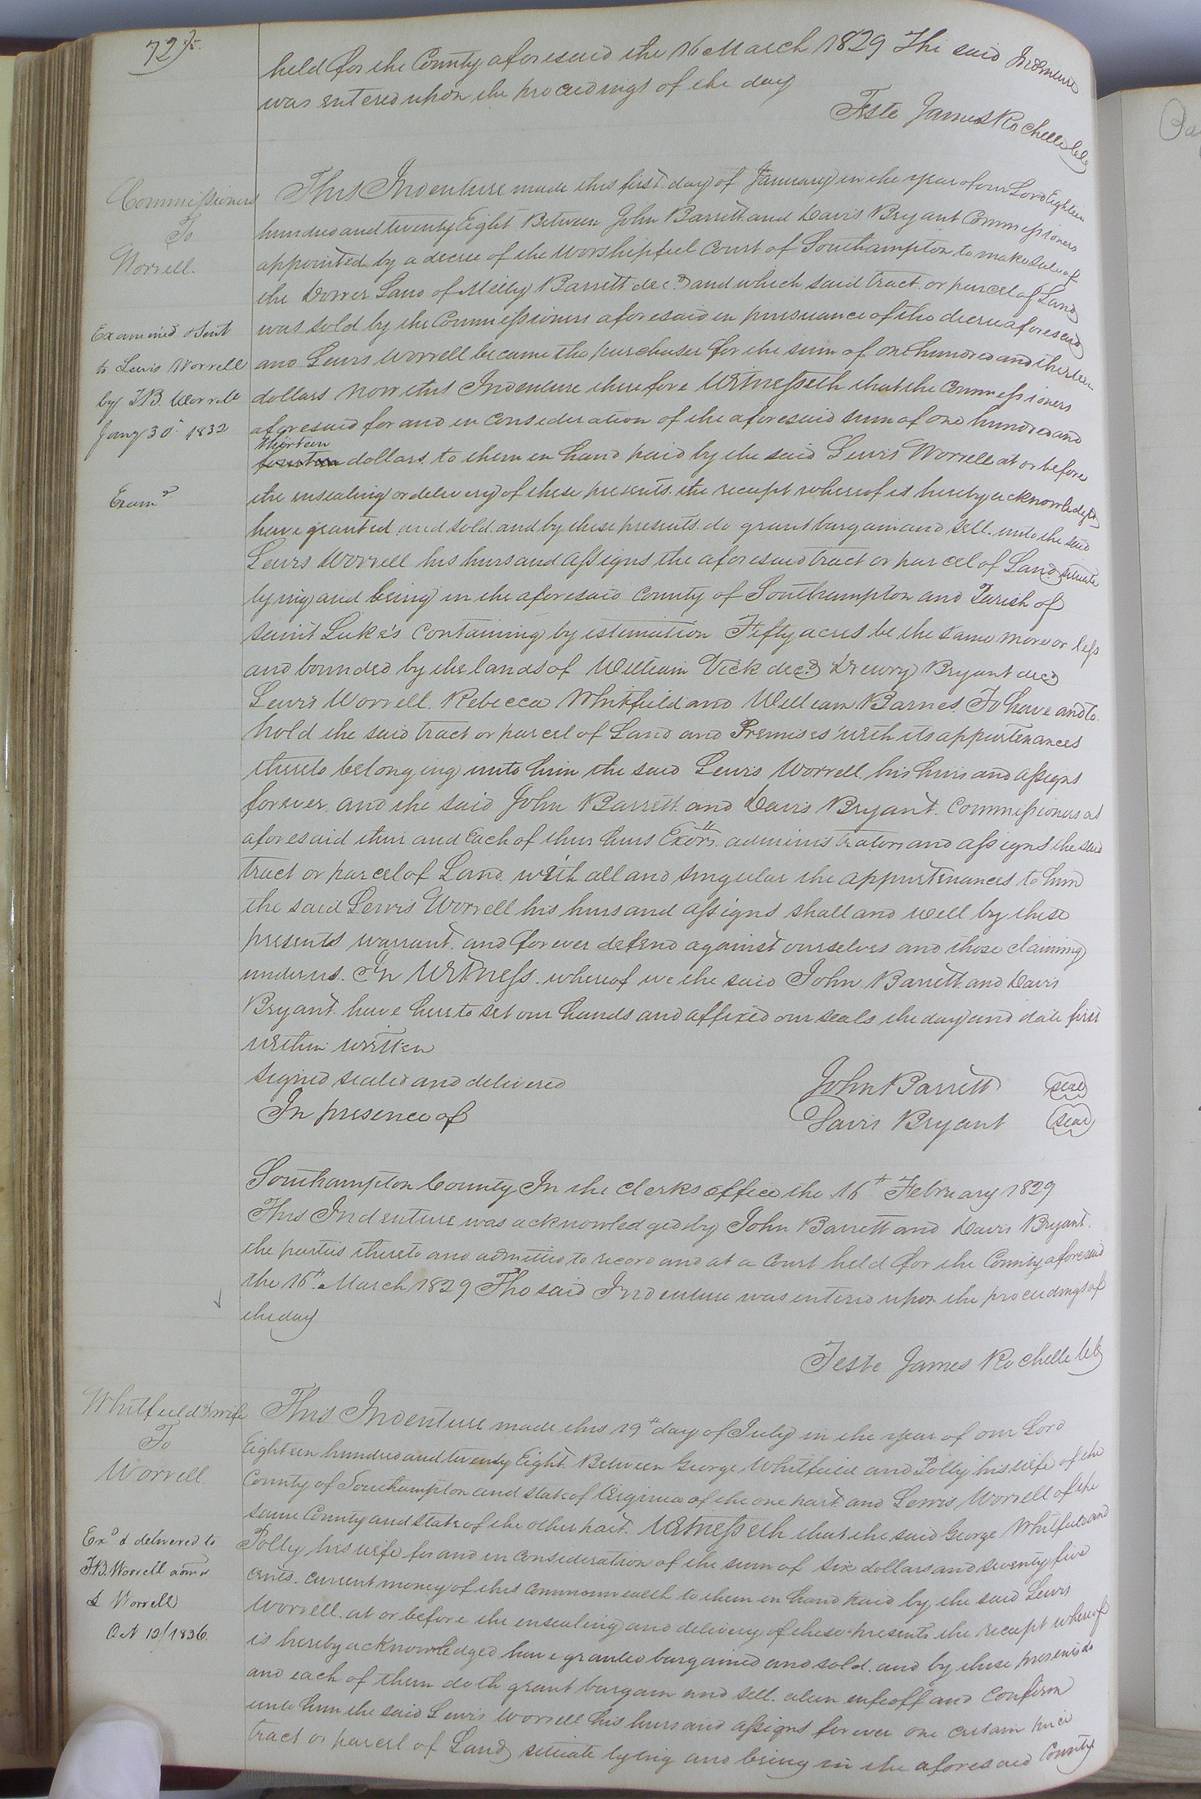 72
held for the County aforesaid the 16 March 1829 The said Indenture
was entered upon the proceedings of the day
Teste James Rochelle Clk
Commissioners
To
Worrell.
Examined & sent
to Lewis Worrell
by T.B. Worrell
Jany 30th 1832
Exam.d
This Indenture made this first day of January in the year of our Lord Eighteen
hundred and twenty Eight Between John Barrett and Davis Bryant Commissioners
appointed by a decree of the Worshipful Court of Southampton to make sale of
the Dower Land of Milly Barrett dec.d and which said tract or parcel of Land
was sold by the Commissioners aforesaid in pursuance of the decree aforesaid
and Lewis Worrell became the purchaser for the sum of one hundred and thirteen
dollars now this Indenture therefore Witnesseth that the Commissioners
aforesaid for and in consideration of the aforesaid sum of one hundred and
thirteen
fourteen dollars to them in hand paid by the said Lewis Worrell at or before
the ensealing or delivery of these presents the receipt whereof is hereby acknowledged
have granted and sold and by these presents do grant bargain and sell unto the said
Lewis Worrell his heirs and assigns the aforesaid tract or parcel of Land situate
lying and being in the aforesaid County of Southampton and Parish of
Saint Luke's Containing by estimation Fifty acres be the same more or less
and bounded by the lands of William Vick dec.d Drewry Bryant decd
Lewis Worrell Rebecca Whitfield and William Barnes To have and to
hold the said tract or parcel of Land and Premises with its appurtenances
thereto belonging unto him the said Lewis Worrell his heirs and assigns
forever and the said John Barrett and Davis Bryant Commissioners as
aforesaid their and Each of their heirs Exors. administrators and assigns the said
tract or parcel of Land with all and singular the appurtenances to him
the said Lewis Worrell his heirs and assigns shall and will by these
presents warrant and forever defend against ourselves and those claiming
under us. In Witness whereof we the said John Barrett and Davis
Bryant have hereto set our hands and affixed our seals the day and date first
within written
Signed sealed and delivered
In presence of
John Barrett seal
Davis Bryant seal
Southampton County In the Clerks office the 16th February 1829
This Indenture was acknowledged by John Barrett and Davis Bryant
the parties thereto and admitted to record and at a Court held for the County aforesaid
the 16th March 1829 The said Indenture was entered upon the proceedings of
the day
Teste James Rochelle Clk
Whitfield & wife
To
Worrell
Exd & delivered to
T.B. Worrell adm.r
L Worrell
Oct 19/1836.
This Indenture made this 19th day of July in the year of our Lord
Eighteen hundred and twenty Eight Between George Whitfield and Polly his wife of the
County of Southampton and state of Virginia of the one part and Lewis Worrell of the
same County and state of the other part. Witnesseth that the said George Whitfield and
Polly his wife for and in consideration of the sum of six dollars and seventy five
cents. current money of this Commonwealth to them in hand paid by the said Lewis
Worrell at or before the ensealing and delivery of these presents the receipt whereof
is hereby acknowledged have granted bargained and sold and by these presents do
and each of them doth grant bargain and sell alien enfeoff and Confirm
unto him the said Lewis Worrell his heirs and assigns forever one certain piece
tract or parcel of Land situate lying and being in the aforesaid County